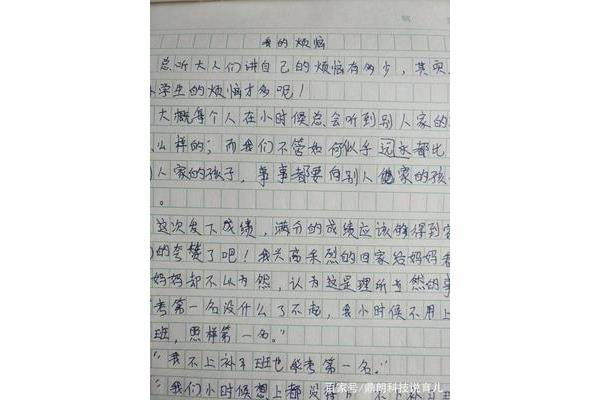 我的烦恼
总听大人们讲自己的烦恼有多少，其实
小学生的烦恼才多呢！
大概每个人在小时候总会听到别人家的
么样的，而我们不管如何似乎远永都比
人家的孩子，事事都要向别人家的孩
。
这次发下成绩，满分的成绩应该够得到
的夸赞了吧！我兴高采烈的回家给妈妈
妈妈却不以为然，认为这是理所当然的事
考第一名没什么了不起，我小时候不用上
班，照样第一名。”
“我不上补习班也能考第一名。”
“我们小时候想上都没
百家号/鼎朗科技说育儿